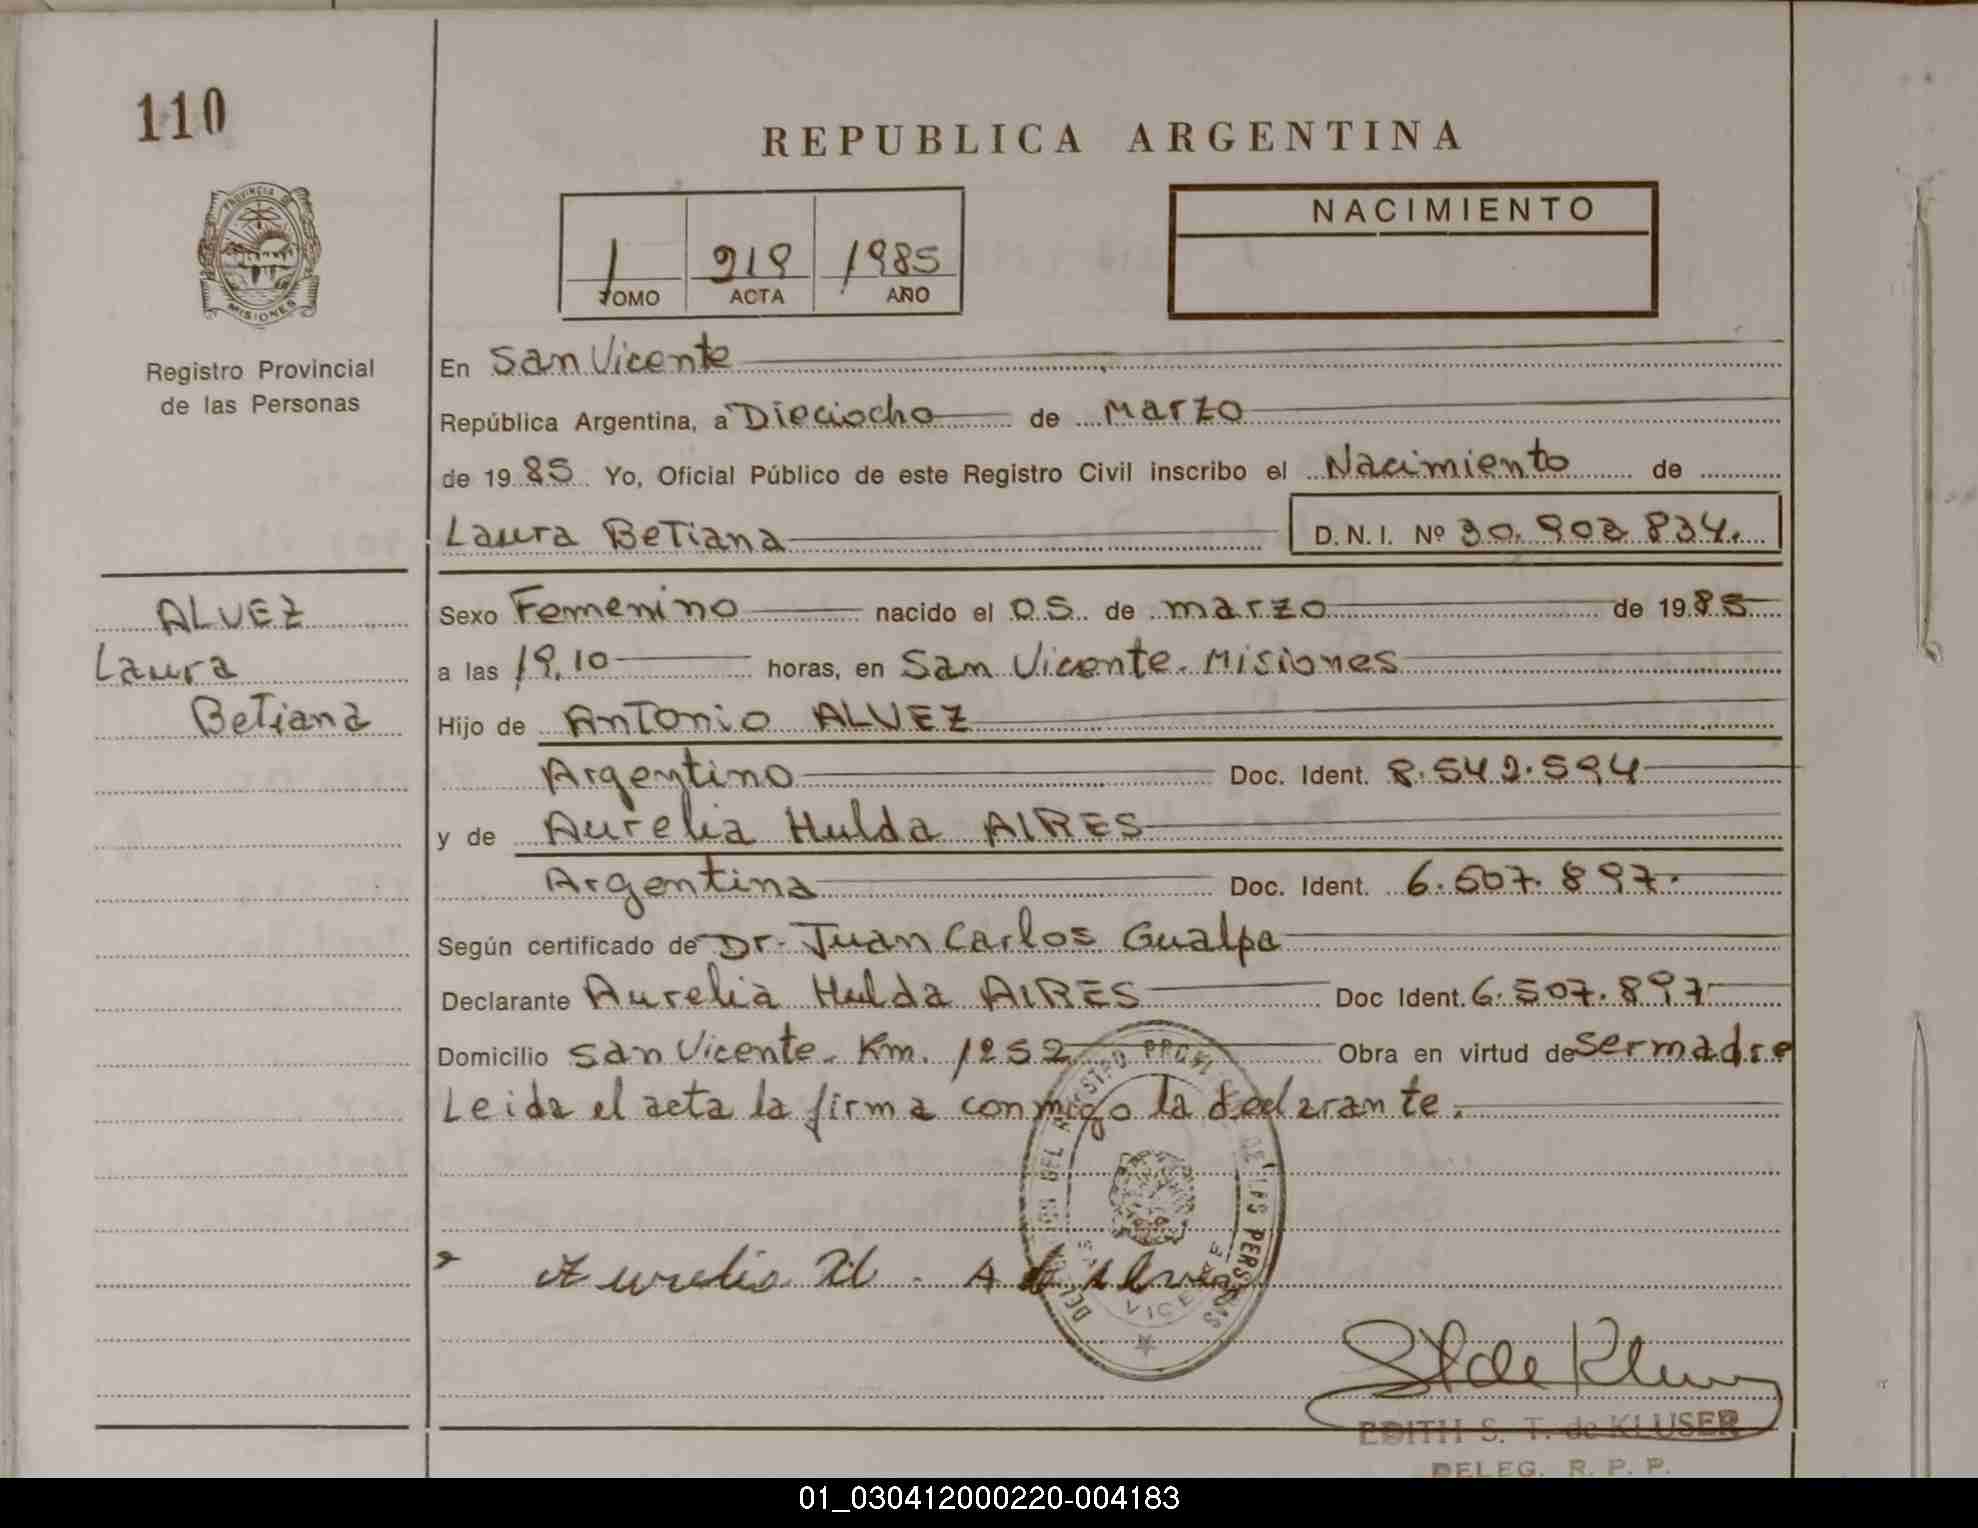 110
REPUBLICA ARGENTINA
PROVINCIA DE
MISIONES
Registro Provincial
de las Personas
1 219 1985
TOMO ACTA AÑO
NACIMIENTO
En San Vicente
República Argentina, a Dieciocho de marzo
de 1985 Yo, Oficial Público de este Registro Civil inscribo el Nacimiento de
Laura Betiana D.N.I. Nº 30.903.834.
ALVEZ
Laura
Betiana
Sexo Femenino nacido el 05 de marzo de 1985
a las 19,10 horas, en San Vicente. Misiones
Hijo de Antonio ALVEZ
Argentino Doc. Ident. 8.542.594
y de Aurelia Hulda AIRES
Argentina Doc. Ident. 6.507.897.
Según certificado de Dr. Juan Carlos Gualpa
Declarante Aurelia Hulda AIRES Doc Ident. 6.507.897
Domicilio San Vicente. Km. 1252 Obra en virtud de ser madre
Leida el acta la firma conmigo la declarante.
Aurelia H. A de Alvez
DEL REGISTRO PROVINCIAL DE LAS PERSONAS
VICENTE
EDITH S. T. de KLUSER
DELEG. R. P. P.
01_030412000220-004183